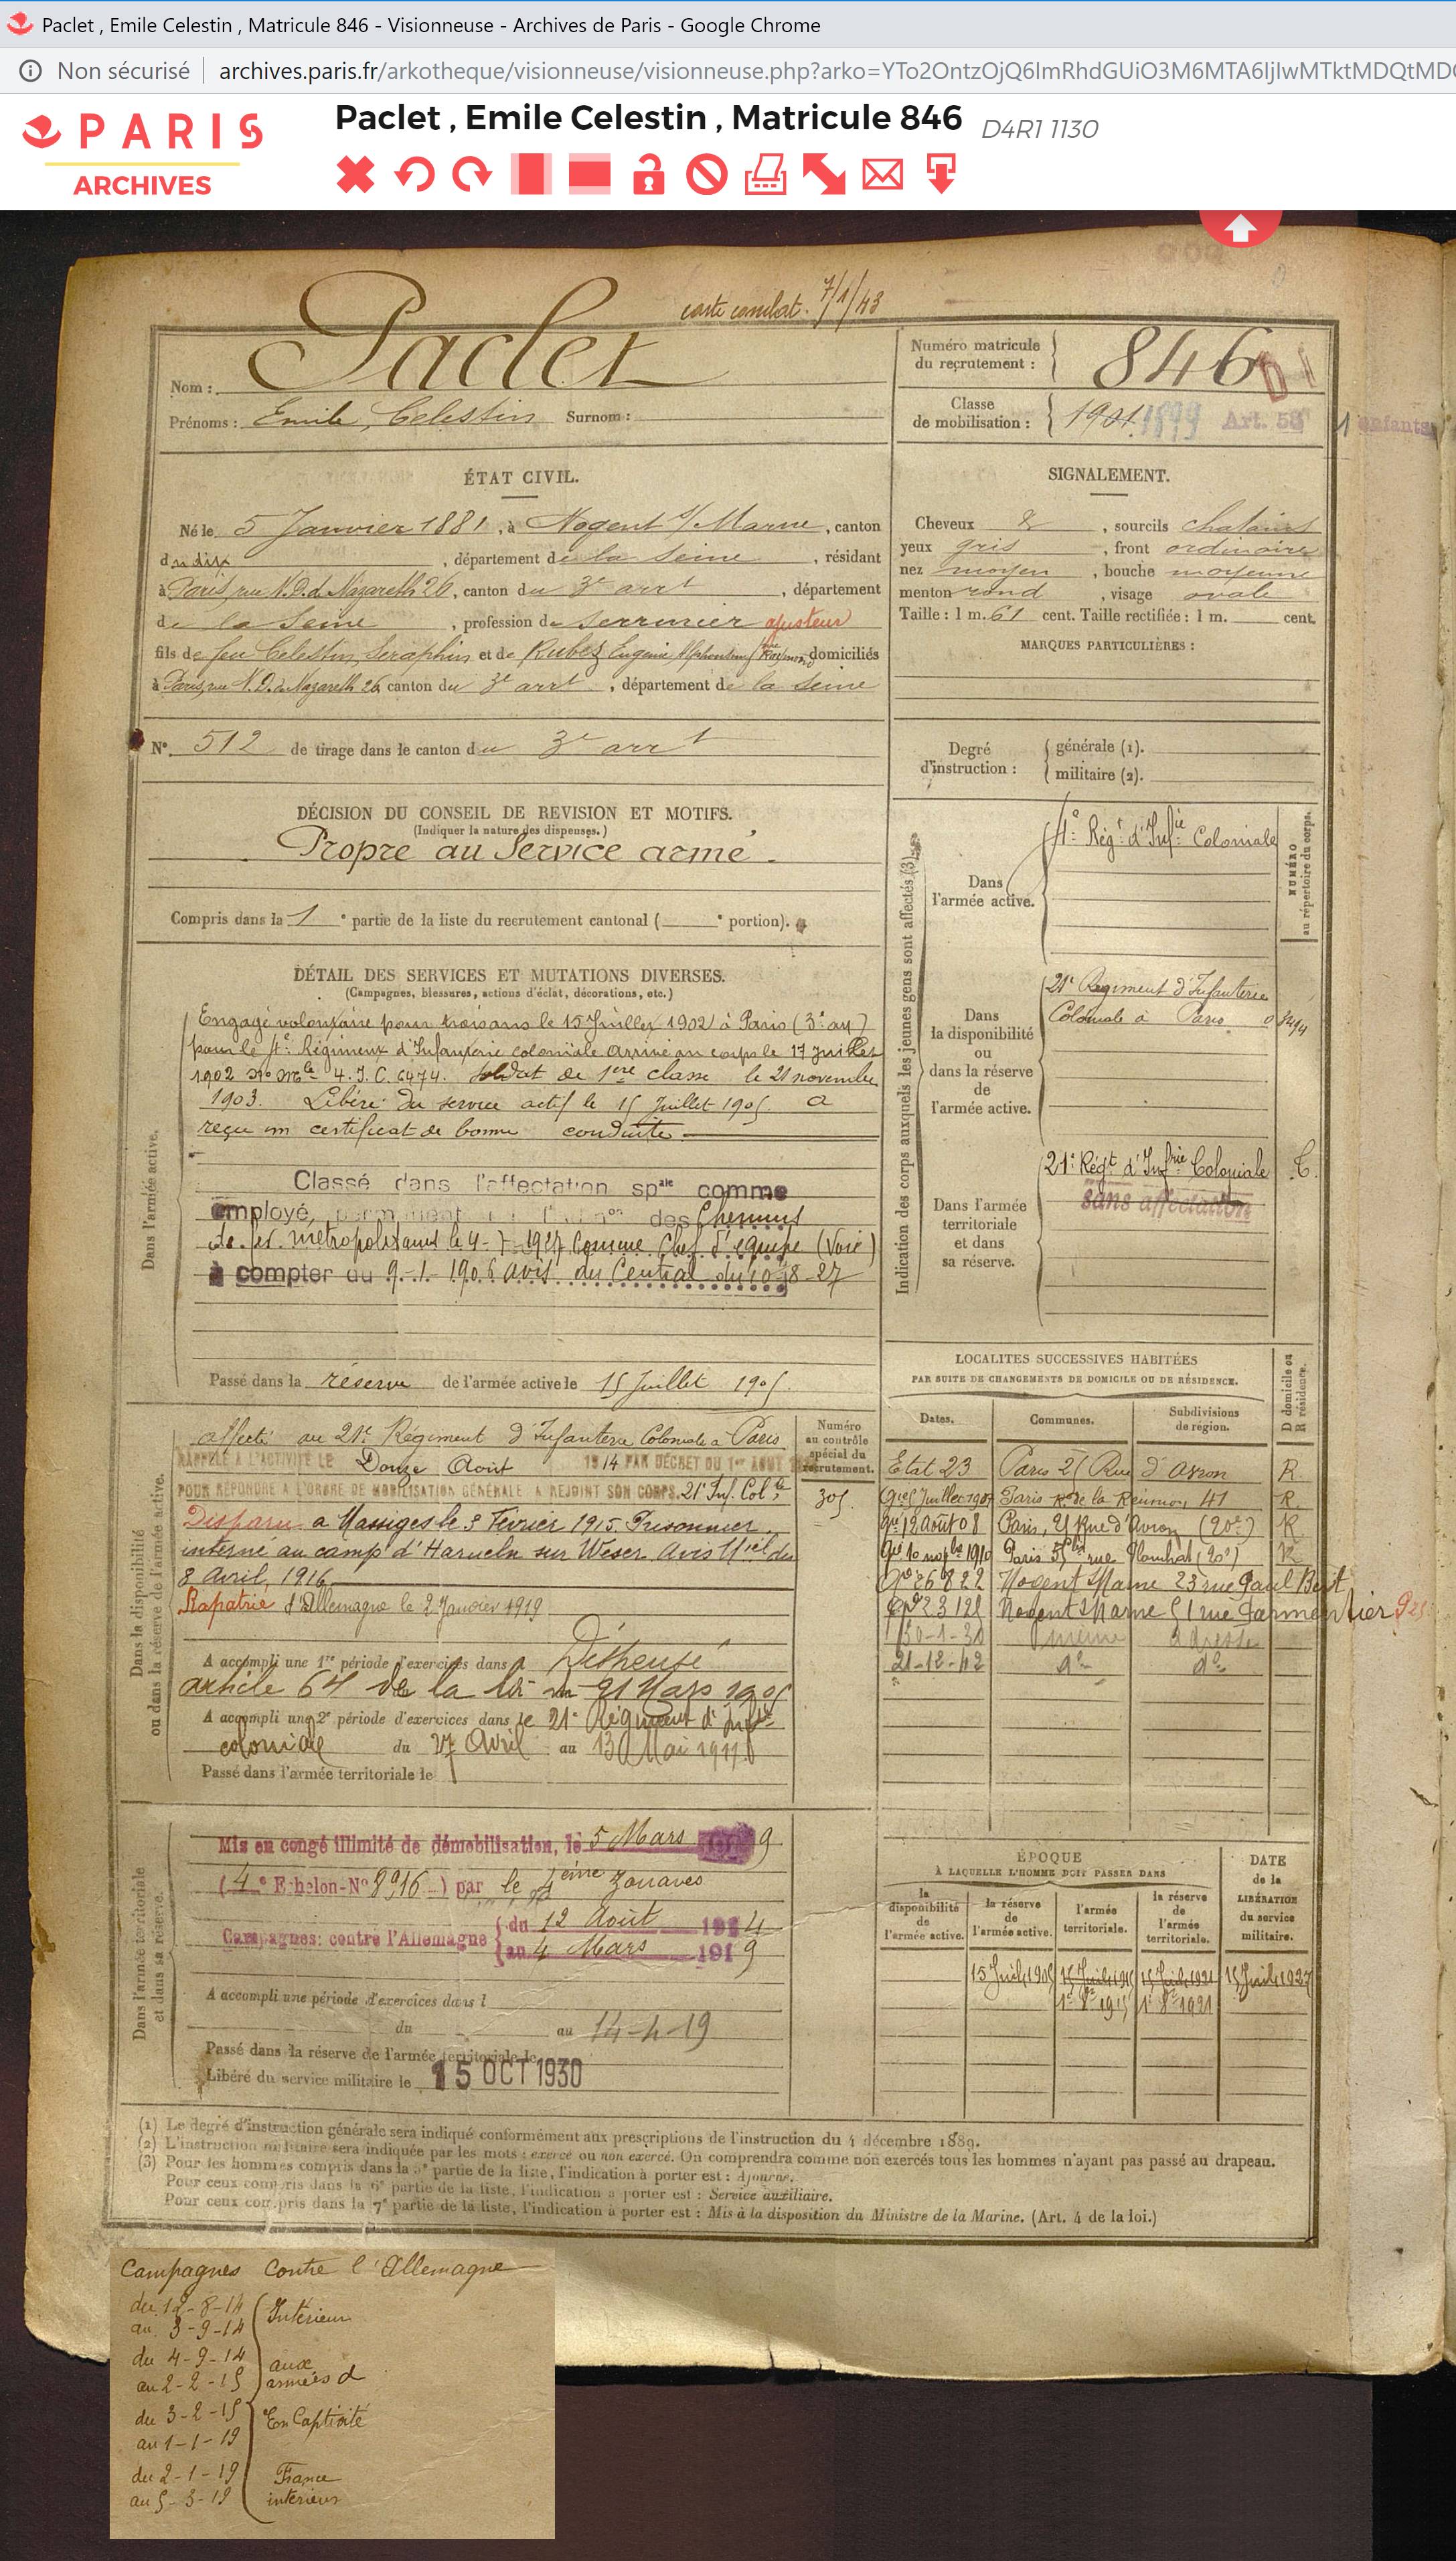 Paclet , Emile Celestin , Matricule 846 - Visionneuse - Archives de Paris - Google Chrome
Non sécurisé archives.paris.fr/arkotheque/visionneuse/visionneuse.php?arko=
PARIS
ARCHIVES
Paclet , Emile Celestin , Matricule 846 D4R1 1130
carte combat. 7/1/43
Nom : Paclet
Prénoms : Emile, Celestin Surnom :
Numéro matricule
du recrutement : 846
Classe
de mobilisation : 1901 1899 Art. 58 1 enfants
ÉTAT CIVIL.
Né le 5 Janvier 1881, à Nogent s/ Marne, canton
du dit, département de la Seine, résidant
à Paris, rue N.D. d. Nazareth 26, canton du 3e arrt, département
de la Seine, profession de serrurier ajusteur
fils de feu Celestin, Seraphin et de Rubez Eugénie domiciliés
à Paris, rue N.D. de Nazareth 26, canton du 3e arrt, département de la Seine
N° 512 de tirage dans le canton du 3e arrt
SIGNALEMENT.
Cheveux &, sourcils chatains
yeux gris, front ordinaire
nez moyen, bouche moyenne
menton rond, visage ovale
Taille : 1 m. 61 cent. Taille rectifiée : 1 m. cent.
MARQUES PARTICULIÈRES :
Degré
d'instruction :
générale (1).
militaire (2).
DÉCISION DU CONSEIL DE REVISION ET MOTIFS.
(Indiquer la nature des dispenses.)
Propre au Service armé.
Compris dans la 1e partie de la liste du recrutement cantonal ( e portion).
DÉTAIL DES SERVICES ET MUTATIONS DIVERSES.
(Campagnes, blessures, actions d'éclat, décorations, etc.)
Dans l'armée active.
Engagé volontaire pour trois ans le 15 Juillet 1902 à Paris (3e arr)
pour le 4e Régiment d'Infanterie coloniale arrivé au corps le 17 Juillet
1902 No Mle 4. I. C. 6474. Soldat de 1ere classe le 21 novembre
1903. Libéré du service actif le 15 Juillet 1905. a
reçu un certificat de bonne conduite
Classé dans l'affectation spale comme
employé permanent des Chemins
de fer métropolitains le 4-7-1927 Comme Chef d'équipe (Voie)
à compter du 9-1-1906 avis du Central du 10-8-27
Passé dans la réserve de l'armée active le 15 Juillet 1905.
Indication des corps auxquels les jeunes gens sont affectés (3)
NUMÉRO
au répertoire du corps.
Dans
l'armée active.
4e Régt d'Infie Coloniale
Dans
la disponibilité
ou
dans la réserve
de
l'armée active.
21e Regiment d'Infanterie
Coloniale à Paris
Dans l'armée
territoriale
et dans
sa réserve.
21e Régt d'Infrie Coloniale
sans affectation
Dans la disponibilité
ou dans la réserve de l'armée active.
affecté au 21e Régiment d'Infanterie Coloniale à Paris
RAPPELÉ A L'ACTIVITÉ LE Douze Août 1914 PAR DÉCRET DU 1er AOUT
POUR RÉPONDRE A L'ORDRE DE MOBILISATION GÉNÉRALE A REJOINT SON CORPS. 21e Inf. Colle
Disparu a Massiges le 3 Fevrier 1915. Prisonnier
interné au camp d'Hameln sur Weser Avis Miel du
8 Avril, 1916
Rapatrié d'Allemagne le 2 Janvier 1919
A accompli une 1re période d'exercices dans Dispensé
article 64 de la loi du 21 Mars 1905
A accompli une 2e période d'exercices dans le 21e Régiment d'Inftie
coloniale du 27 Avril au 13 Mai 1911
Passé dans l'armée territoriale le
Numéro
au contrôle
spécial du
recrutement.
305.
LOCALITES SUCCESSIVES HABITÉES
PAR SUITE DE CHANGEMENTS DE DOMICILE OU DE RÉSIDENCE.
Dates. Communes. Subdivisions
de région. D domicile ou
R résidence.
Etat 23 Paris 21 Rue d'Avron R.
Juillet 1907 Paris R. de la Réunion, 41 R.
12 août 08 Paris, 21 Rue d'Avron (20e) R
10 nobre 1910 Paris 55bis rue Planchat (20e) R
26 8 22 Nogent s Marne 23 rue Paul Bert
23 125 Nogent s Marne 51 rue Parmentier
30-1-30 même adresse
21-12-42 do do
Dans l'armée territoriale
et dans sa réserve.
Mis en congé illimité de démobilisation, le 5 Mars 1919
(4e Echelon-No 8916) par le 4eime Zouaves
Campagnes: contre l'Allemagne du 12 Août 1914
au 4 Mars 1919
A accompli une période d'exercices dans l
du au 14-4-19
Passé dans la réserve de l'armée territoriale le
Libéré du service militaire le 15 OCT 1930
ÉPOQUE
À LAQUELLE L'HOMME DOIT PASSER DANS
la
disponibilité
de
l'armée active.
la réserve
de
l'armée active.
l'armée
territoriale.
la réserve
de
l'armée
territoriale.
DATE
de la
LIBÉRATION
du service
militaire.
15 Juil. 1905 15 Juil. 1915 15 Juil. 1921 15 Juil. 1927
1e 8re 1915 1e 8re 1921
(1) Le degré d'instruction générale sera indiqué conformément aux prescriptions de l'instruction du 4 décembre 1889.
(2) L'instruction militaire sera indiquée par les mots : exercé ou non exercé. On comprendra comme non exercés tous les hommes n'ayant pas passé au drapeau.
(3) Pour les hommes compris dans la 5e partie de la liste, l'indication à porter est : Ajourné.
Pour ceux compris dans la 6e partie de la liste, l'indication a porter est : Service auxiliaire.
Pour ceux compris dans la 7e partie de la liste, l'indication à porter est : Mis à la disposition du Ministre de la Marine. (Art. 4 de la loi.)
Campagnes Contre l'Allemagne
du 12-8-14
au 3-9-14 Intérieur
du 4-9-14
au 2-2-15 aux armées d
du 3-2-15
au 1-1-19 En Captivité
du 2-1-19
au 5-3-19 France intérieur